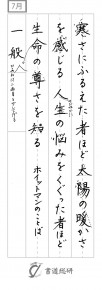 7月
寒さにふるえた者ほど太陽の暖かさ
を感じる 人生の悩みをくぐった者ほど
生命の尊さを知る
ホイットマンのことば
一般
書道総研